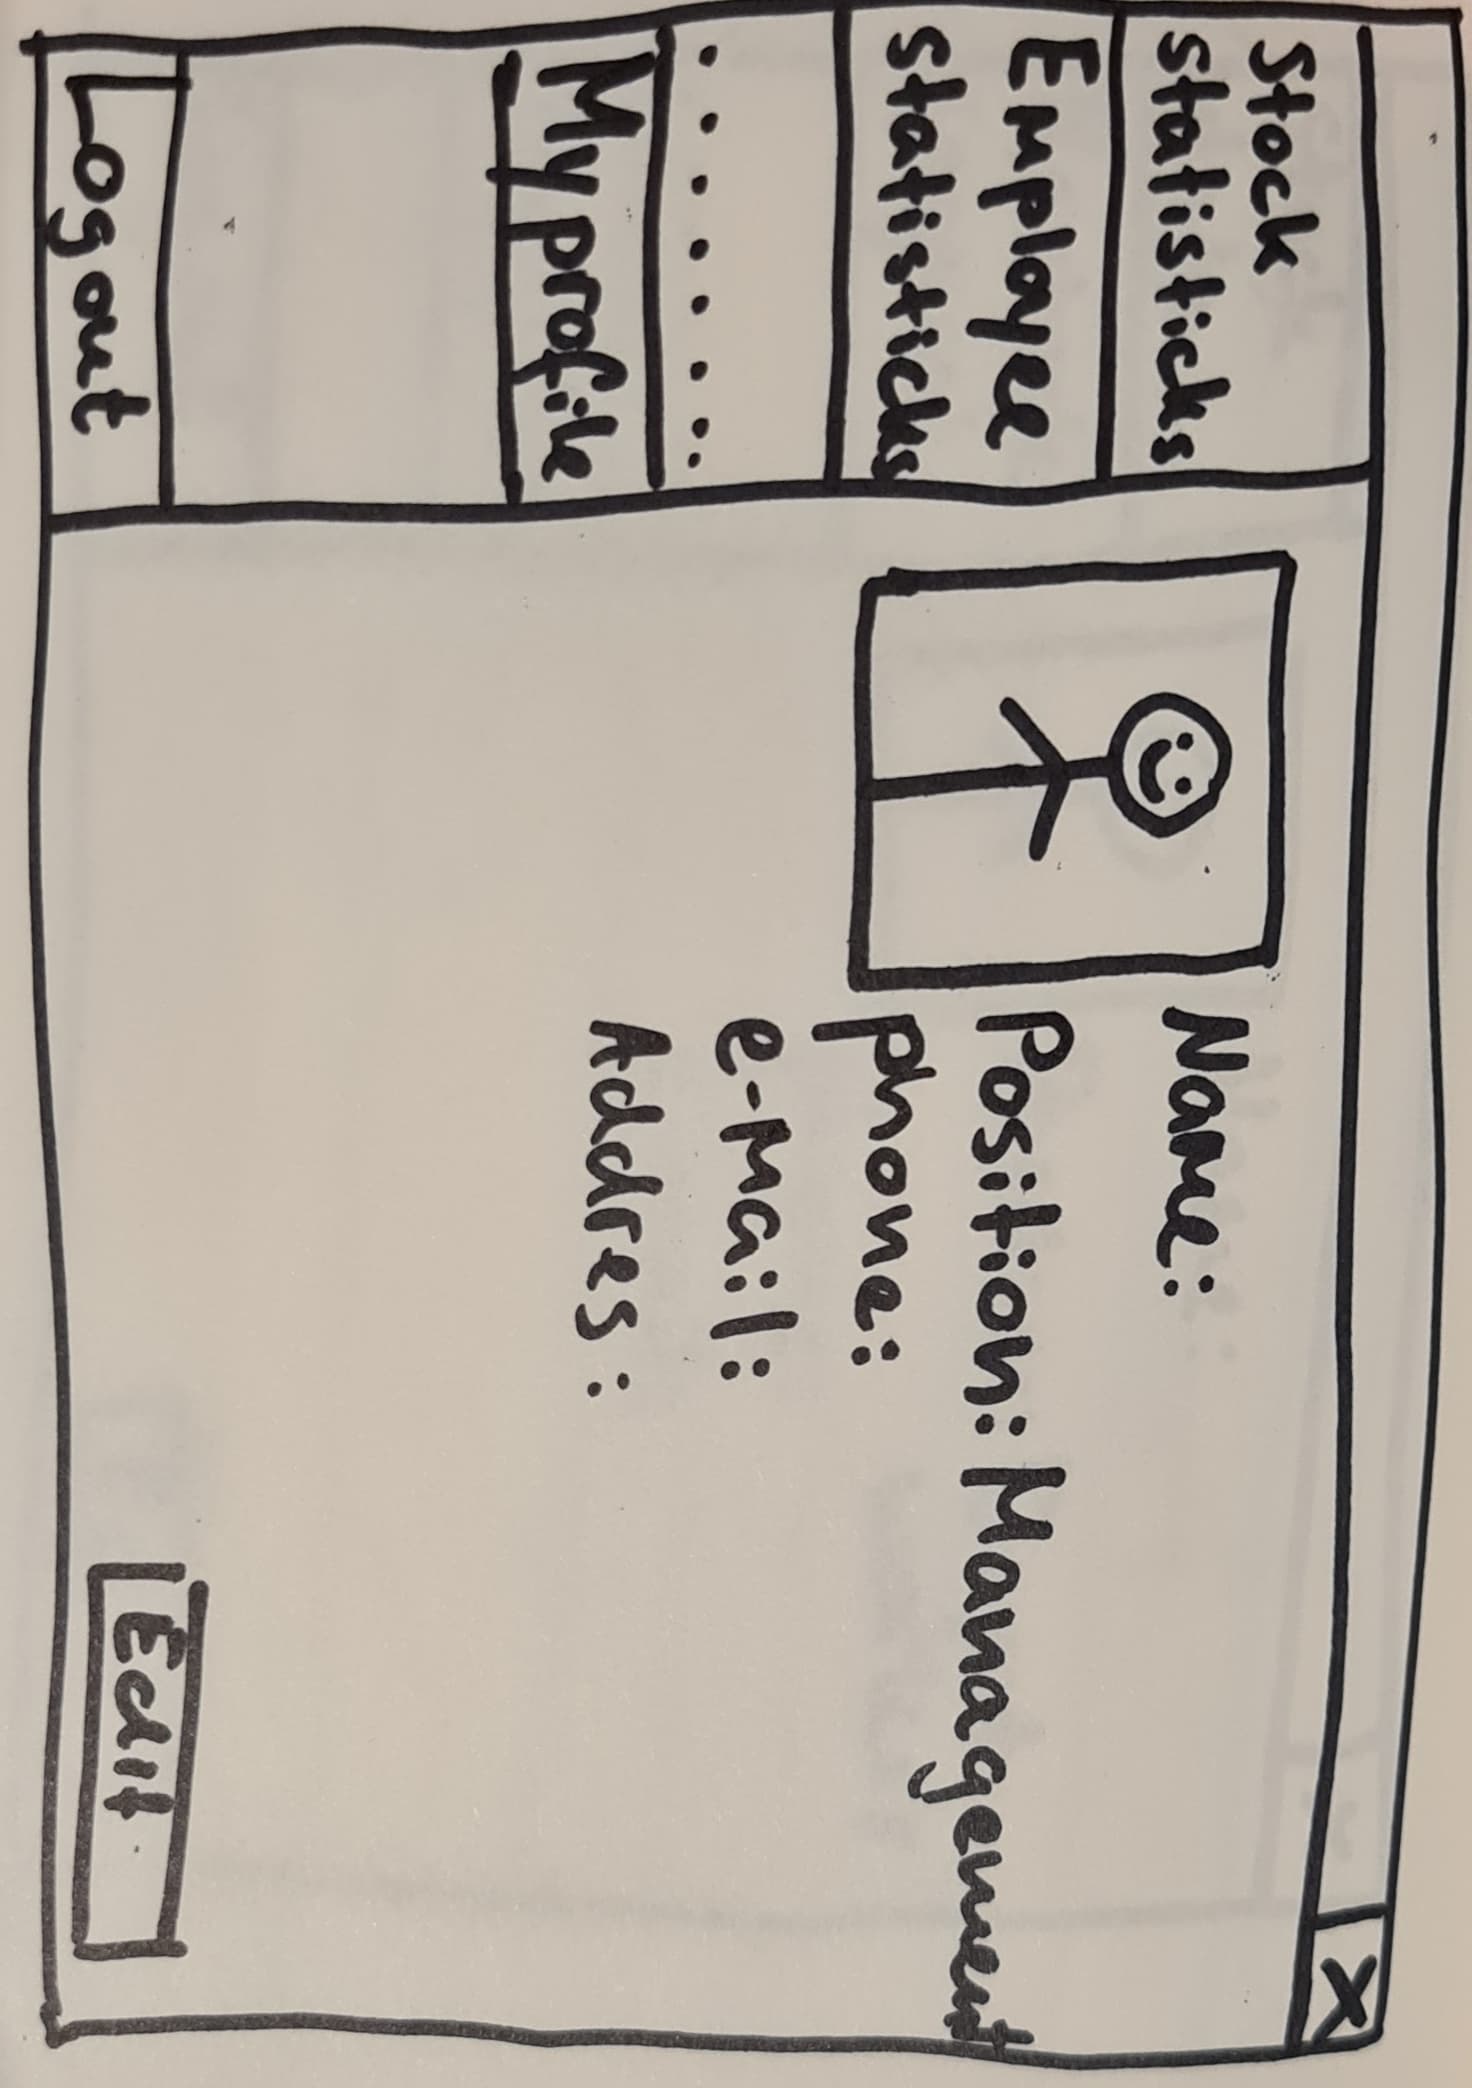 X
Stock
statisticks
Employee
statisticks
. . . . . . . .
My profile
Logout
Name:
Position: Management
phone:
e-Mail:
Addres:
Edit